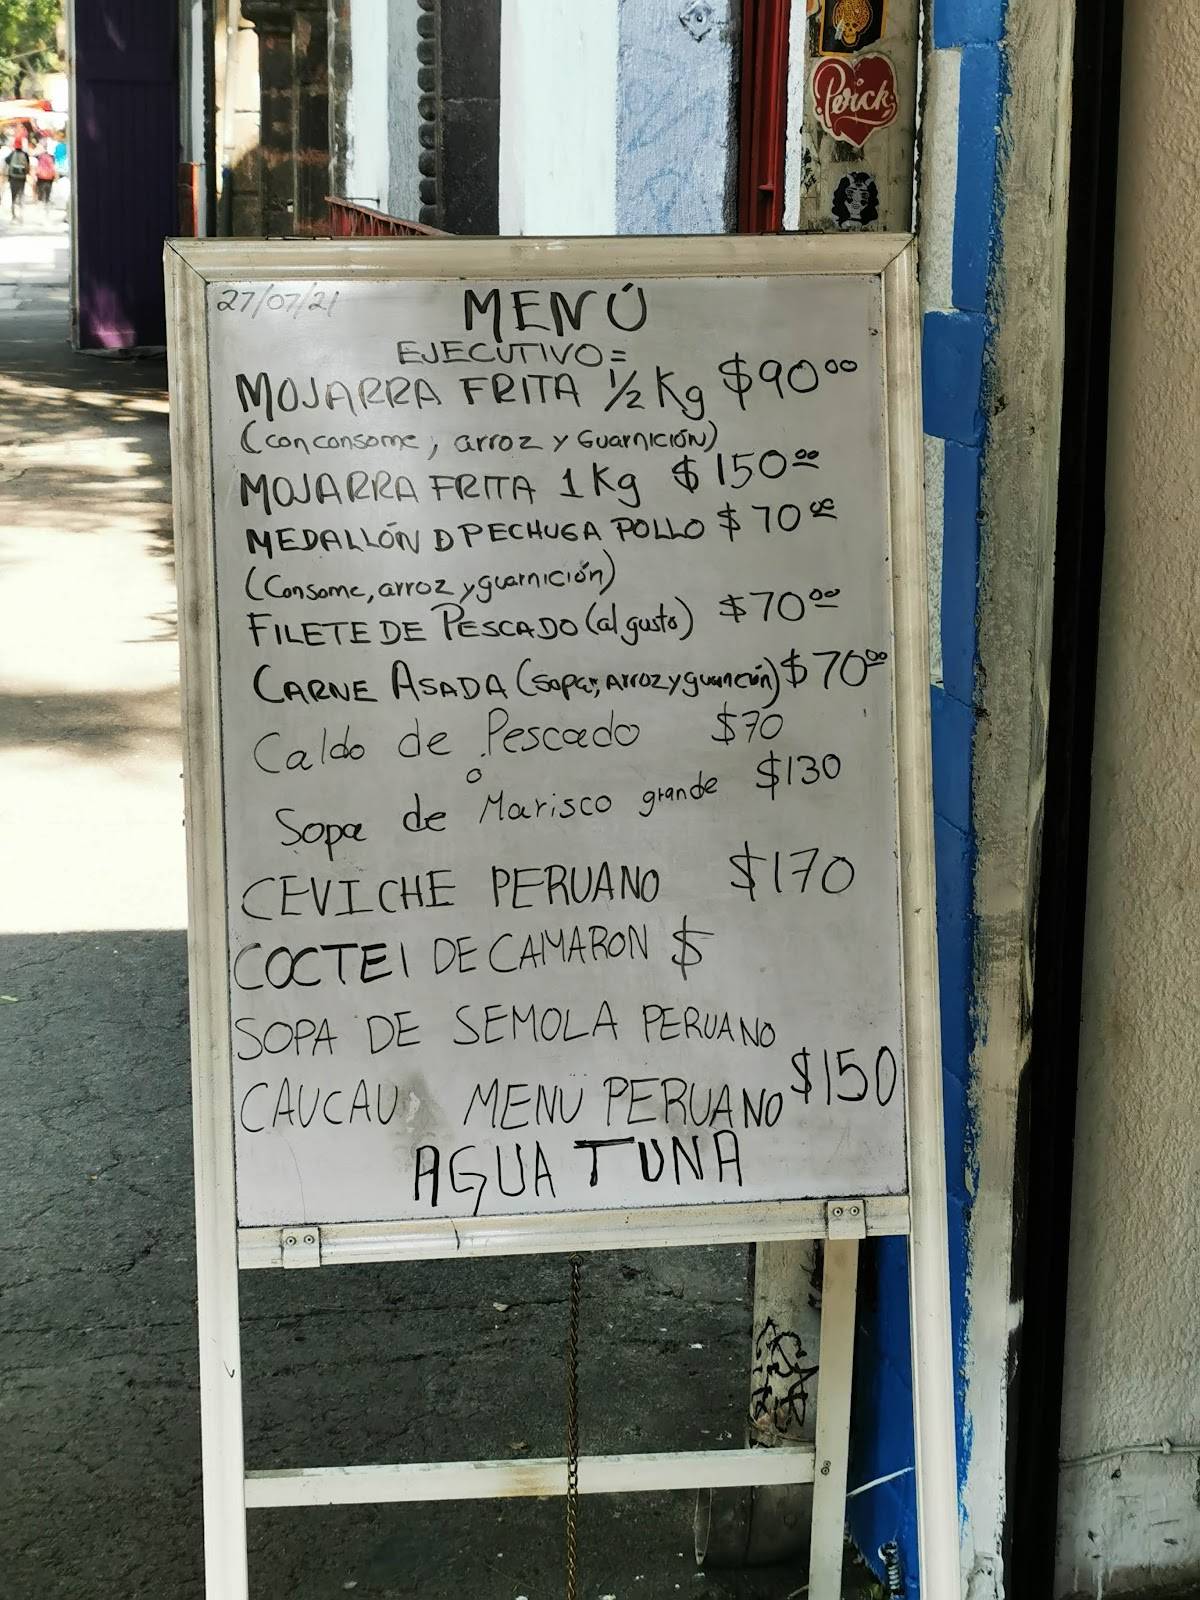 Perick
27/07/21
MENÚ
EJECUTIVO=
MOJARRA FRITA 1/2 Kg $90.00
(con consome, arroz y Guarnición)
MOJARRA FRITA 1 Kg $150.00
MEDALLÓN D PECHUGA POLLO $70.00
(Consome, arroz y guarnición)
FILETE DE PESCADO (al gusto) $70.00
CARNE ASADA (sopa, arroz y guarnción) $70.00
Caldo de Pescado $70
o
Sopa de Marisco grande $130
CEVICHE PERUANO $170
COCTEl DE CAMARON $
SOPA DE SEMOLA PERUANO
CAUCAU MENU PERUANO $150
AGUA TUNA